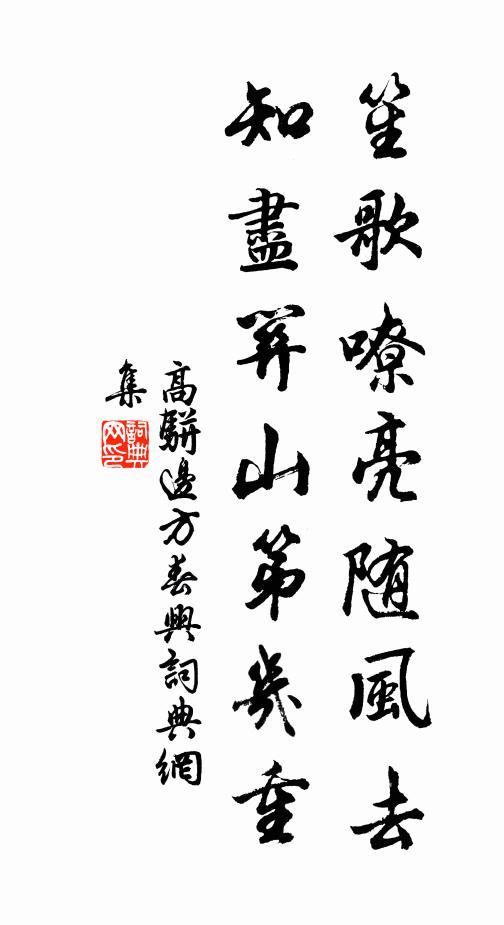 笙歌嘹亮随風去
知盡關山第幾重
高駢邊方春興詞典網
集
詞典网印